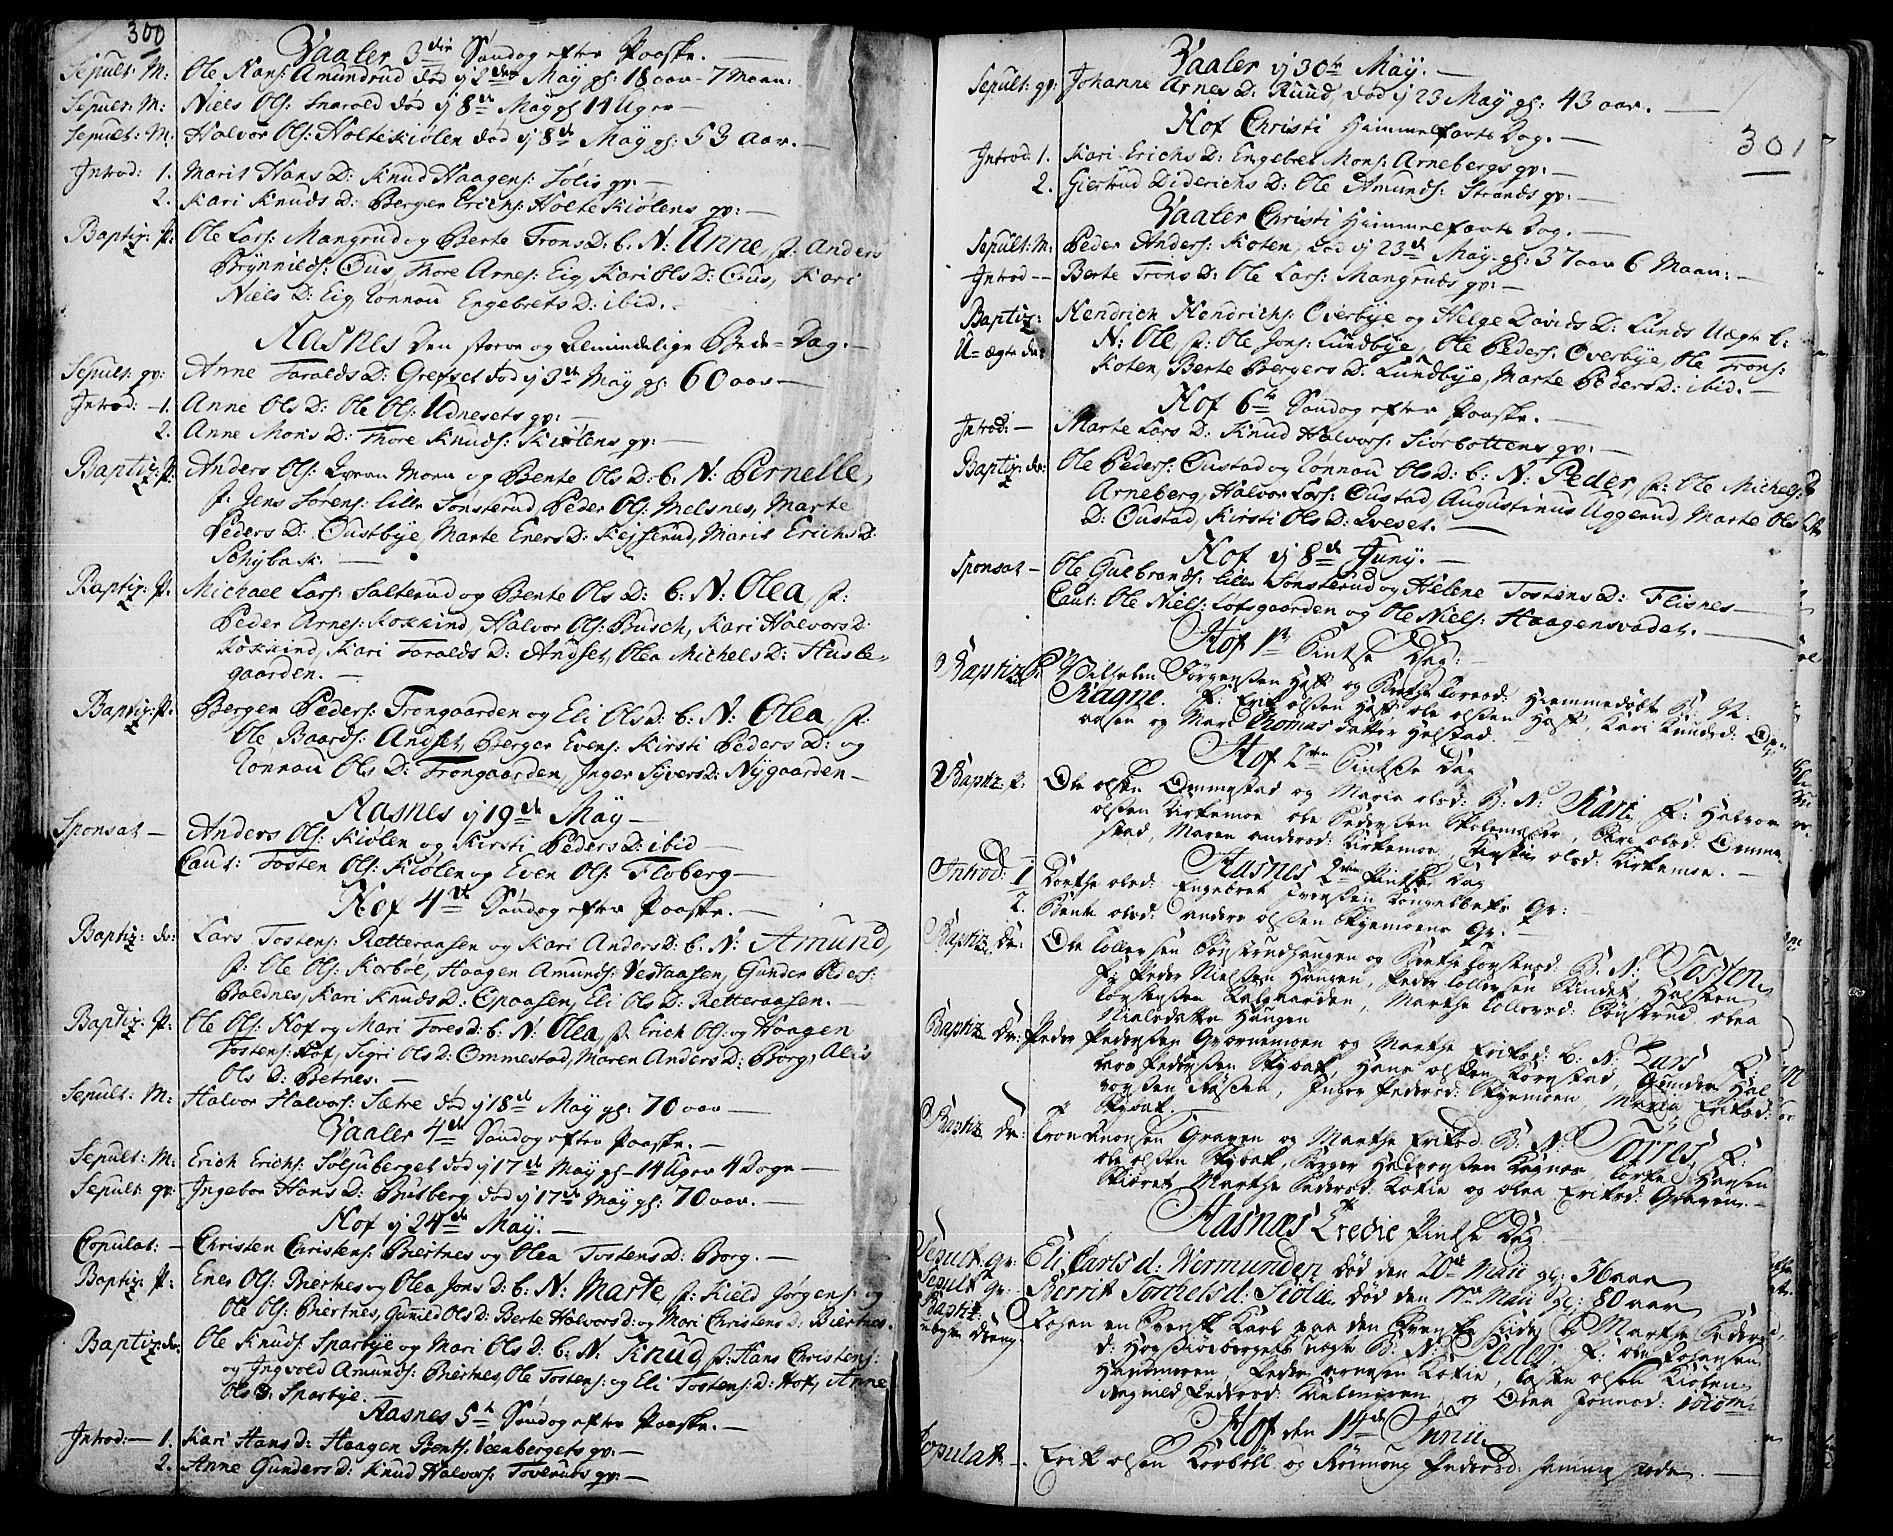 300
Vaaler 3die Søndag efter Paaske. —
Sepult: M: Ole Hans: Amundrud død d 2den May gl: 18 aar 7 Maan:
Sepult: M: Niels Ols: Snarold død d 8de May gl 11 Uger —
Sepult: M: Halvor Ols: Holtekiølen død d 8de May gl: 53 aar. —
Introd: 1. Marit Hans D: Knud Haagens: Sølis qv: —
2. Kari Knuds D: Berger Erichs: Holtekiølens qv: —
Baptiz: p: Ole Lars: Mangrud og Berte Trons D: b: N: Anne, f: Anders
Brynnilds: Ous, Thore Arnes: Eig, Kari Ols D: Ous, Kari
Niels D: Eig, Rønnau Engebrets D: ibid. —
Aasnes den store og Almindelige Bede-Dag. —
Sepult: qv: Anne Taralds D: Grefset død d 3de May gl: 60 aar —
Introd: — 1. Anne Ols D: Ole Ols: Udnesets qv: —
2. Anne Mons D: Thore Knuds: Kiølens qv: —
Baptiz: p: Anders Ols: Moen og Bente Ols D: b: N: Pernelle,
f: Jens Sørens: Lille Sønsterud, Peder Ols: Melsnes, Marte
Peders D: Oustbye, Marte Eners D: Kejserud, Marit Erichs D:
Schybak. —
Baptiz: p: Michael Lars: Salterud og Bente Ols D: b: N: Olea, f:
Peder Arnes: Rokkind, Halvor Ols: Busch, Kari Halvors D:
Rokkind, Kari Taralds D: Andset, Olea Michels D: Husle-
gaarden. —
Baptiz: p: Berger Peders: Trongaarden og Eli Ols D: b: N: Olea, f:
Ole Baards: Andset, Berger Evens: Kirsti Peders D: og
Rønnau Ols D: Trongaarden, Inger Sivers D: Nygaarden —
Aasnes d 19de May —
Sponsat — Anders Ols: Kiølen og Kirsti Peders D: ibid —
Caut: Tosten Ols: Kiølen og Even Ols: Floberg —
Hof 4de Søndag efter Paaske. —
Baptiz: dr: Lars Tostens: Retteraasen og Kari Anders D: b: N: Amund,
f: Ole Ols: Korbøe, Haagen Amunds: Vestaasen, Gunder Peders:
Baldnes, Kari Knuds D: Opaasen, Eli Ols D: Retteraasen. —
Baptiz: p: Ole Ols: Hof og Mari Tores D: b: N: Olea, f: Erich Ols: og Haagen
Tostens: Hof, Sigri Ols D: Ommestad, Maren Anders D: Borg, Alis
Ols D: Betnes. —
Sepult: M: Halvor Halvors: Sætre død d 18de May gl: 70 aar —
Vaaler 4de Søndag efter Paaske. —
Sepult: M: Erich Erichs: Søljuberget død d 17de May gl 14 Uger 4 Dage —
Sepult: qv: Ingebor Hans D: Busberg død d 17de May gl: 70 aar. —
Hof d 24de May. —
Copulat: — Christen Christens: Biertnes og Olea Tostens D: Borg. —
Baptiz: p: Ener Ols: Biertnes og Olea Jons D: b: N: Marte, f: Kield Jørgens: og
Ole Ols: Biertnes, Gunild Ols D: Berte Halvors D: og Mari Christens D: Biertnes.
Baptiz: dr: Ole Knuds: Sparbye og Mari Ols D: b: N: Knud, f: Hans Christens:
og Ingvold Amunds: Biertnes, Ole Tostens: og Eli Tostens: D: Hof, Anne
Ols D: Sparbye.
Aasnes 5te Søndag efter Paaske. —
Introd: — 1. Kari Hans D: Haagen Bents: Veenbergets qv: —
2. Anne Gunders D: Knud Halvors: Toveruds qv: —
301
Vaaler d 30te May. —
Sepult: qv: Johanne Arnes D: Ruud, død d 23 May gl: 43 aar. —
Hof Christi Himmelfarts Dag. —
Introd: 1. Kari Erichs D: Engebret Mons: Arnebergs qv: —
2. Giertrud Diderichs D: Ole Amunds: Strands qv: —
Vaaler Christi Himmelfarts Dag. —
Sepult: M: Peder Anders: Koten, død d 23de May gl: 37 aar 6 Maan: —
Introd — Berte Trons D: Ole Lars: Mangruds qv: —
Baptiz: Hendrich Hendrichs: Overbye og Helge Davids D: Lunds Uægte b:
U-ægte dr: N: Ole, f: Ole Jons: Lundbye, Ole Peders: Overbye, Ole Trons:
Koten, Berte Bergers D: Lundbye, Marte Peders D: ibid. —
Hof 6te Søndag efter Paaske. —
Introd: — Marte Lars D: Knud Halvors: Siorbottens qv: —
Baptiz: dr: Ole Peders: Oustad og Rønnau Ols D: b: N: Peder, f: Ole Michels:
Arneberg, Halvor Lars: Oustad, Augustinus Uggerud, Marte Ols
D: Oustad, Kirsti Ols D: Qveset. —
Hof d 8de Juny. —
Sponsat — Ole Gulbrands: Lille Sønsterud og Helene Tostens D: Flisnes —
Caut: Ole Niels: Løfsgaarden og Ole Niels: Haagensvadet. —
Hof 1te Pintse Dag: —
Baptiz p: Vilhelm Jørgensen Hoff og Berthe Torsd: Hiemmedøbt B: N:
Ragne. F: Erik olsen Hoff ole olsen Hoff, Kari Knudsd:
og Mari Thomas datter Helstad.
Hof 2den Pintse Dag
Baptiz: p: Ole olsen Ommestad og Maria olsd: B: N: Kari, F: Halvor
olsen Kirkemoe ole Pedersen Skolemester, Kari olsd: Omme-
stad, Maren andersd: Kirkemoe, Kirstie olsd: Kirkemoe. —
Aasnes 2den Pintse Dag
Introd: 1 Dorthe olsd: Engebret Iversen Kongelbeks Qv: —
2. Bente olsd: anders olsen Skyemoens Qv: —
Baptiz: dr: Ole Tollevsen Sønstrudhaugen og Berthe Torstensd: B: N: Tosten
F: Peder Nielsen Haugen, Peder Tollevsen Rindet, Halvor
Torstensen Galgaarden, Marthe Tollevsd: Sønstrud, olea
Nielsdatter Haugen
Baptiz dr: Peder Pedersen Qværnemoen og Marthe Eriksd: b: N: Lars F:
Lars Pedersen Skybak, Hans olsen Kornstad, Gunder Hal-
vorsen Aasen, Inger Pedersd: Skyemoen, Maria Eriksd:
Skybak. —
Baptiz dr: Tron Knorsen Graven og Marthe Eriksd. B: N: Torres, F:
ole olsen Skybak, Berger Halvorsen Ragnor, Torke Hansen
Skiæret Marthe Pedersd: Kotie og olea Eriksd: Graven. —
Aasnæs Tredie Pintse Dag
Sepult Qv: Eli Carls d: Vermunden død den 20de Maii gl: 36 aar
Sepult Qv: Berrit Torkels d: Kiølen død den 17de Maii gl: 80 aar
Baptiz Johan en Svensk Karl paa den Svenske siide og Marthe Peders
uægte dreng d: Hogsioeberget uægte B: N: Peder F: ole Johansen
Hammeren, Peder Kotie, Lasse olsen Kiølen
Ragnild Pedersd: Hammeren og Olea Jonsd: ibidm:
Hof den 14de Junii
Copulat — Erik olsen Korbøll og Rønnoug Pedersd: sammestæds. —